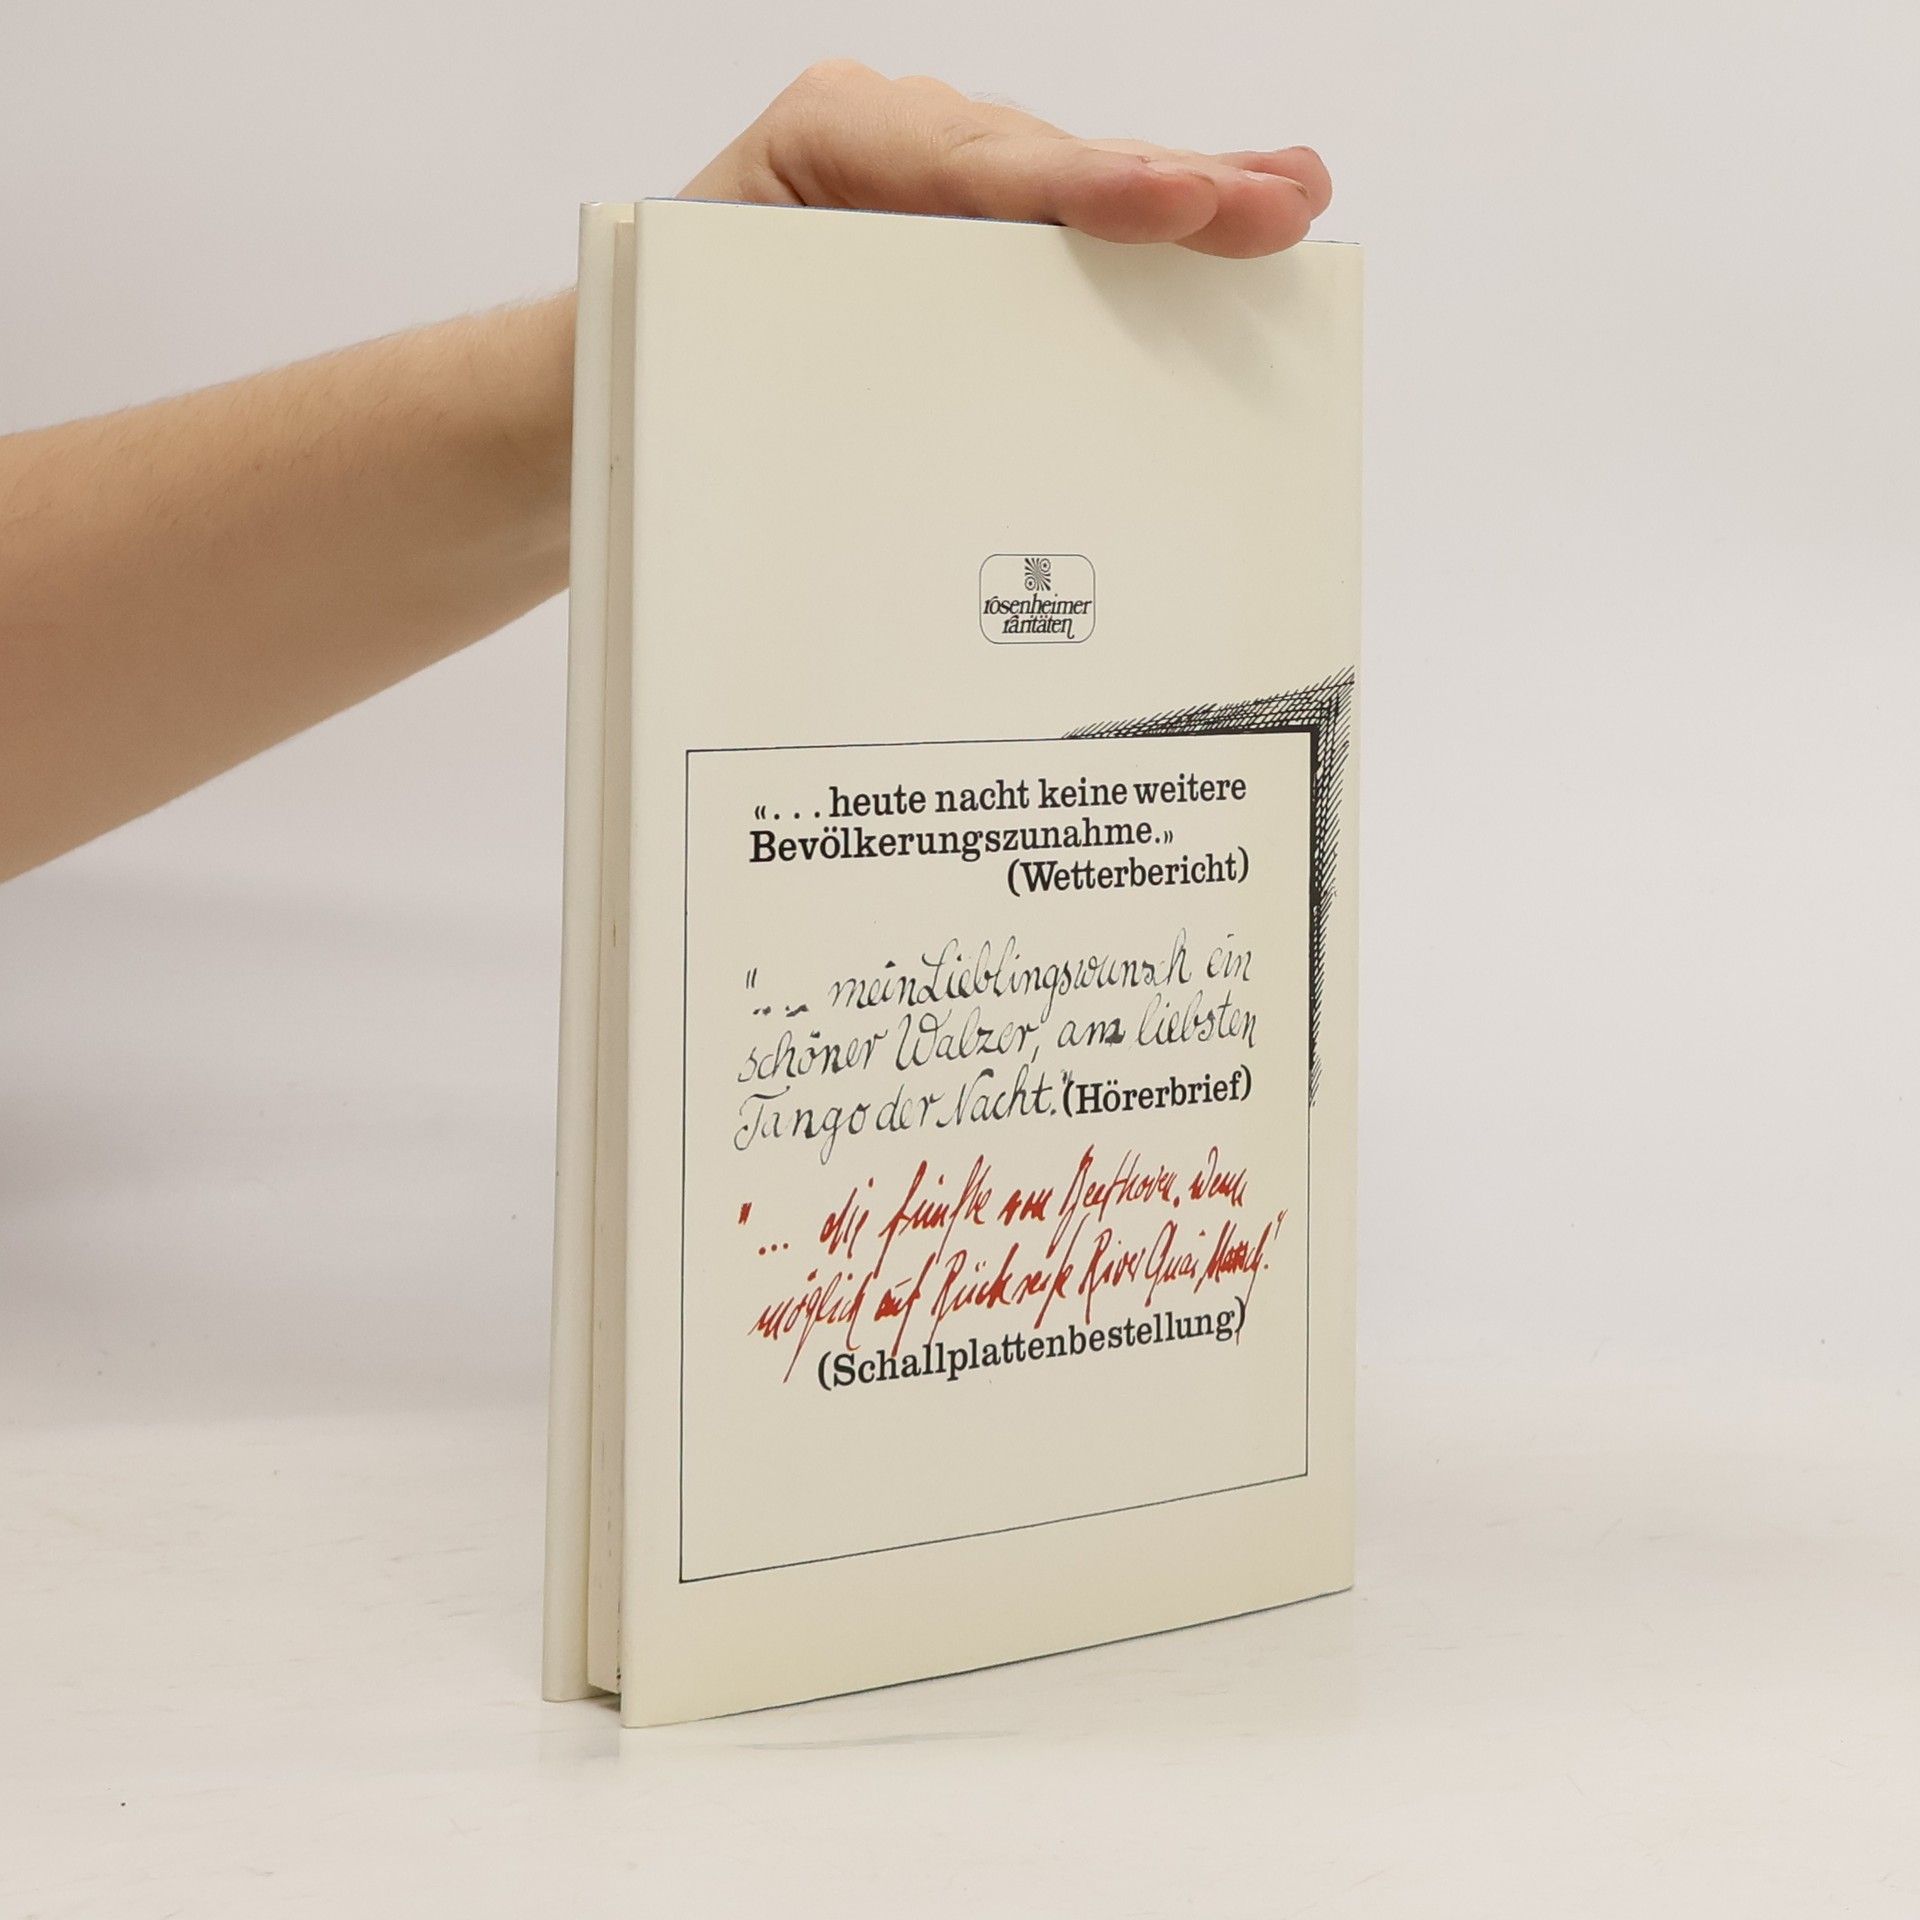 rosenheimer
raritäten
«...heute nacht keine weitere
Bevölkerungszunahme.»
(Wetterbericht)
"... mein Lieblingswunsch ein
schöner Walzer, am liebsten
Tango der Nacht." (Hörerbrief)
"... die fünfte von Beethoven. Wenn
möglich auf Rückseite River Quai Marsch."
(Schallplattenbestellung)